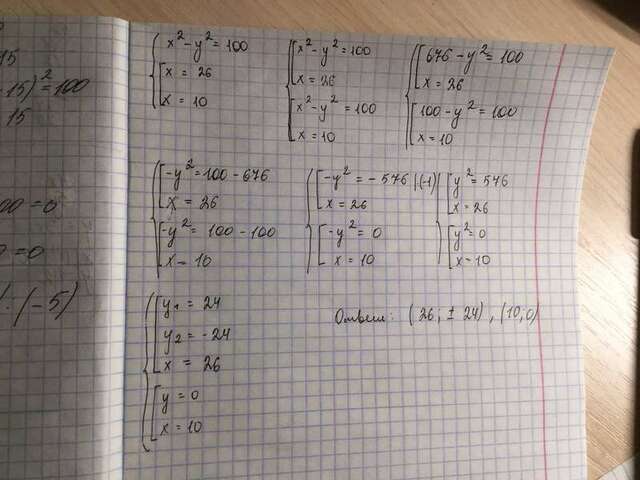 15
- 15)² = 100
15
00 = 0
0 = 0
: (-5)
x² - y² = 100
x = 26
x = 10
x² - y² = 100
x = 26
x² - y² = 100
x = 10
676 - y² = 100
x = 26
100 - y² = 100
x = 10
-y² = 100 - 676
x = 26
-y² = 100 - 100
x = 10
-y² = - 576 | (-1)
x = 26
-y² = 0
x = 10
y² = 576
x = 26
y² = 0
x = 10
y₁ = 24
y₂ = -24
x = 26
y = 0
x = 10
Ответ: (26; ± 24), (10; 0)